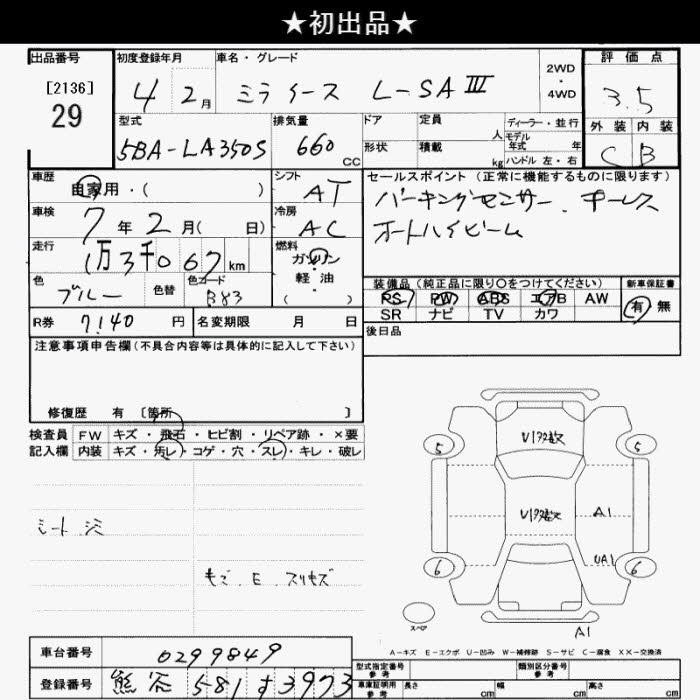 ★初出品★
出品番号 初度登録年月 車名・グレード 2WD・4WD 評価点
[2136]
29
4 2月 ミライース L-SAⅢ 3.5
型式 排気量 ドア 定員 人 ディーラー・並行 外装 内装
モデル年式 年
5BA-LA350S 660cc 形状 積載 kg ハンドル 左・右 C B
車歴 自家用・( ) シフト AT セールスポイント (正常に機能するものに限ります)
パーキングセンサー. キーレス
車検 7年2月( 日) 冷房 AC オートハイビーム
走行 1万3千067km 燃料 ガソリン・軽油・( )
色 ブルー 色替 色コード B83 装備品 (純正品に限り○をつけてください) 新車保証書
PS PW ABS エアB AW 有 無
SR ナビ TV カワ
R券 7140円 名変期限 月 日 後日品
注意事項申告欄 (不具合内容等は具体的に記入して下さい)
修復歴 有 [箇所 ]
検査員記入欄 FW キズ・飛石・ヒビ割・リペア跡・×要
内装 キズ・汚レ・コゲ・穴・スレ・キレ・破レ
5 5
A1
UA1
6 6
スペア
A1
A-キズ E-エクボ U-凹み W-補修跡 S-サビ C-腐食 XX-交換済
車台番号 0299849
登録番号 熊谷 581 す 3973
型式指定番号 参考 類別区分番号 参考
車庫証明用 参考 長さ cm 幅 cm 高さ cm